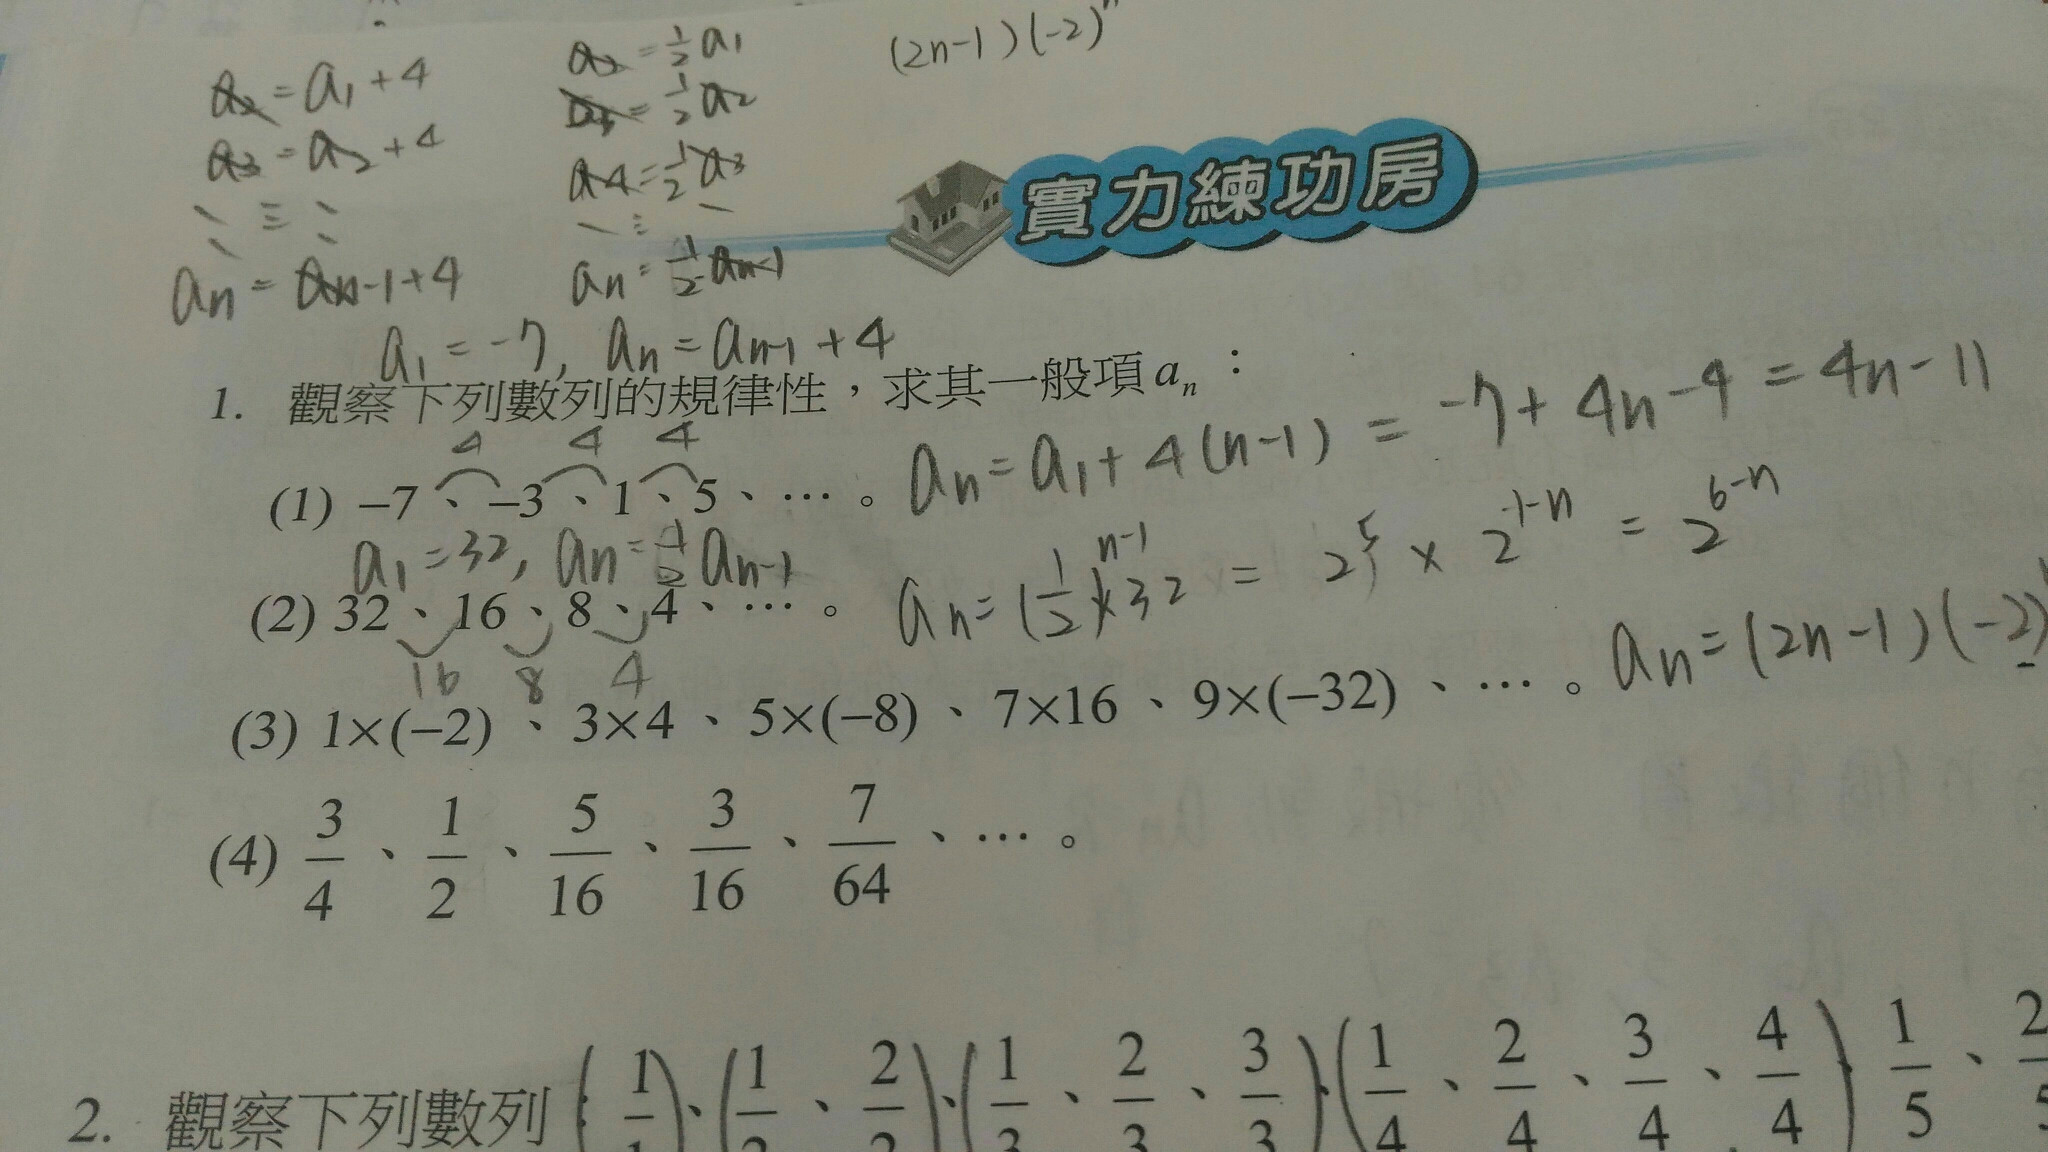 a₂ = a₁ + 4
a₃ = a₂ + 4
aₙ = aₙ-1 + 4
a₂ = 1/2 a₁
a₃ = 1/2 a₂
a₄ = 1/2 a₃
aₙ = 1/2 aₙ-1
(2n-1)(-2)ⁿ
實力練功房
a₁ = -7, aₙ = aₙ₋₁ + 4
1. 觀察下列數列的規律性，求其一般項 aₙ：
4 4 4
(1) –7、–3、1、5、…。
aₙ = a₁ + 4(n-1) = -7 + 4n - 4 = 4n - 11
a₁ = 32, aₙ = 1/2 aₙ₋₁
(2) 32、16、8、4、…。
aₙ = (1/2)ⁿ⁻¹ × 32 = 2⁵ × 2¹⁻ⁿ = 2⁶⁻ⁿ
16 8 4
(3) 1×(–2)、3×4、5×(–8)、7×16、9×(–32)、…。
aₙ = (2n-1)(-2)
(4) 3/4、1/2、5/16、3/16、7/64、…。
2. 觀察下列數列 (1/1)、(1/2、2/2)、(1/3、2/3、3/3)、(1/4、2/4、3/4、4/4) 1/5、2/5